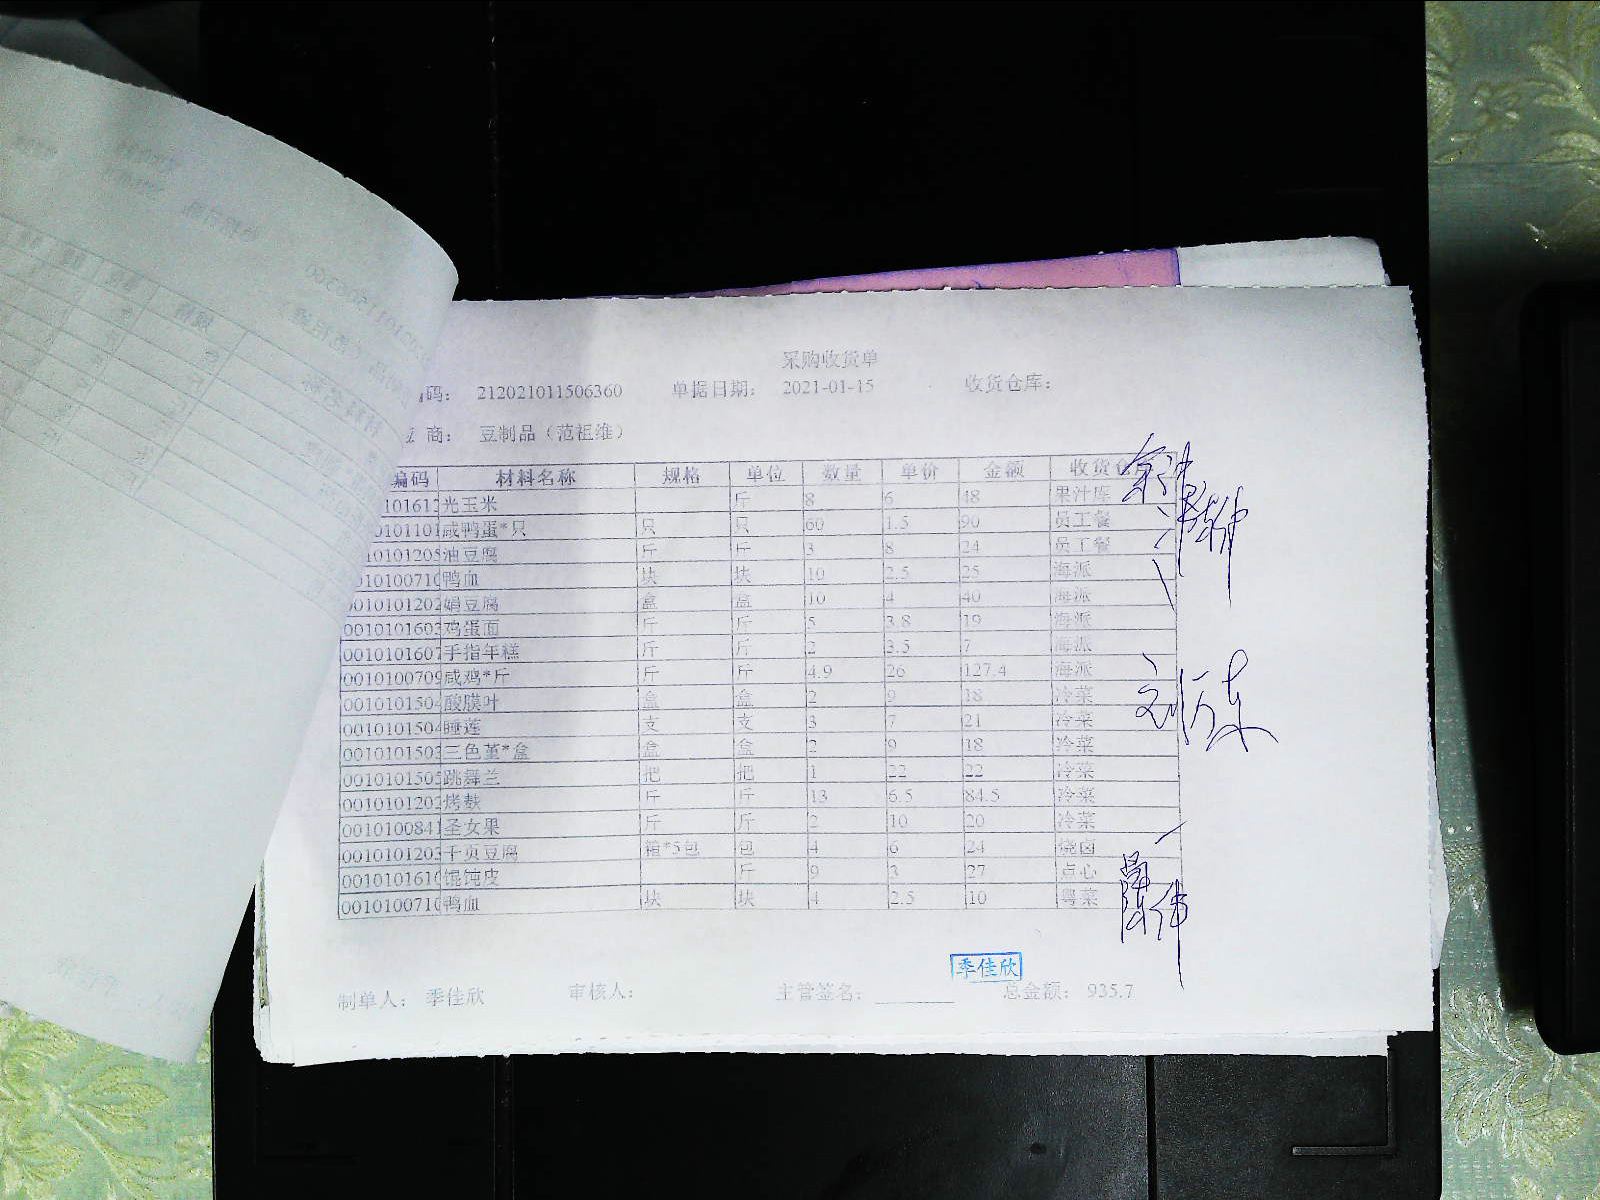 采购收货单
码： 212021011506360 单据日期： 2021-01-15 收货仓库：
商： 豆制品（范祖维）
编码 材料名称 规格 单位 数量 单价 金额 收货仓
101612 光玉米 斤 8 6 48 果汁库
0101101 咸鸭蛋*只 只 只 60 1.5 90 员工餐
10101205 油豆腐 斤 斤 3 8 24 员工餐
010100710 鸭血 块 块 10 2.5 25 海派
0010101202 娟豆腐 盒 盒 10 4 40 海派
0010101603 鸡蛋面 斤 斤 5 3.8 19 海派
0010101607 手指年糕 斤 斤 2 3.5 7 海派
0010100709 咸鸡*斤 斤 斤 4.9 26 127.4 海派
0010101504 酸膜叶 盒 盒 2 9 18 冷菜
0010101504 睡莲 支 支 3 7 21 冷菜
0010101503 三色堇*盒 盒 盒 2 9 18 冷菜
0010101505 跳舞兰 把 把 1 22 22 冷菜
0010101202 烤麸 斤 斤 13 6.5 84.5 冷菜
0010100841 圣女果 斤 斤 2 10 20 冷菜
0010101203 千页豆腐 箱*5包 包 4 6 24 烧卤
0010101610 馄饨皮 斤 9 3 27 点心
0010100710 鸭血 块 块 4 2.5 10 粤菜
季佳欣
制单人： 季佳欣 审核人： 主管签名： 总金额： 935.7